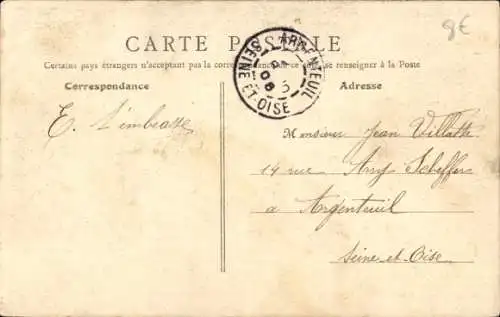 8€
CARTE POSTALE
Certains pays étrangers n'acceptant pas la correspondance ce côté, se renseigner à la Poste
Correspondance
Adresse
ARGENTEUIL
SEINE-ET-OISE
E. t'embrasse
Monsieur Jean Villatte
14 rue Ary Scheffer
a Argenteuil
Seine-et-Oise.